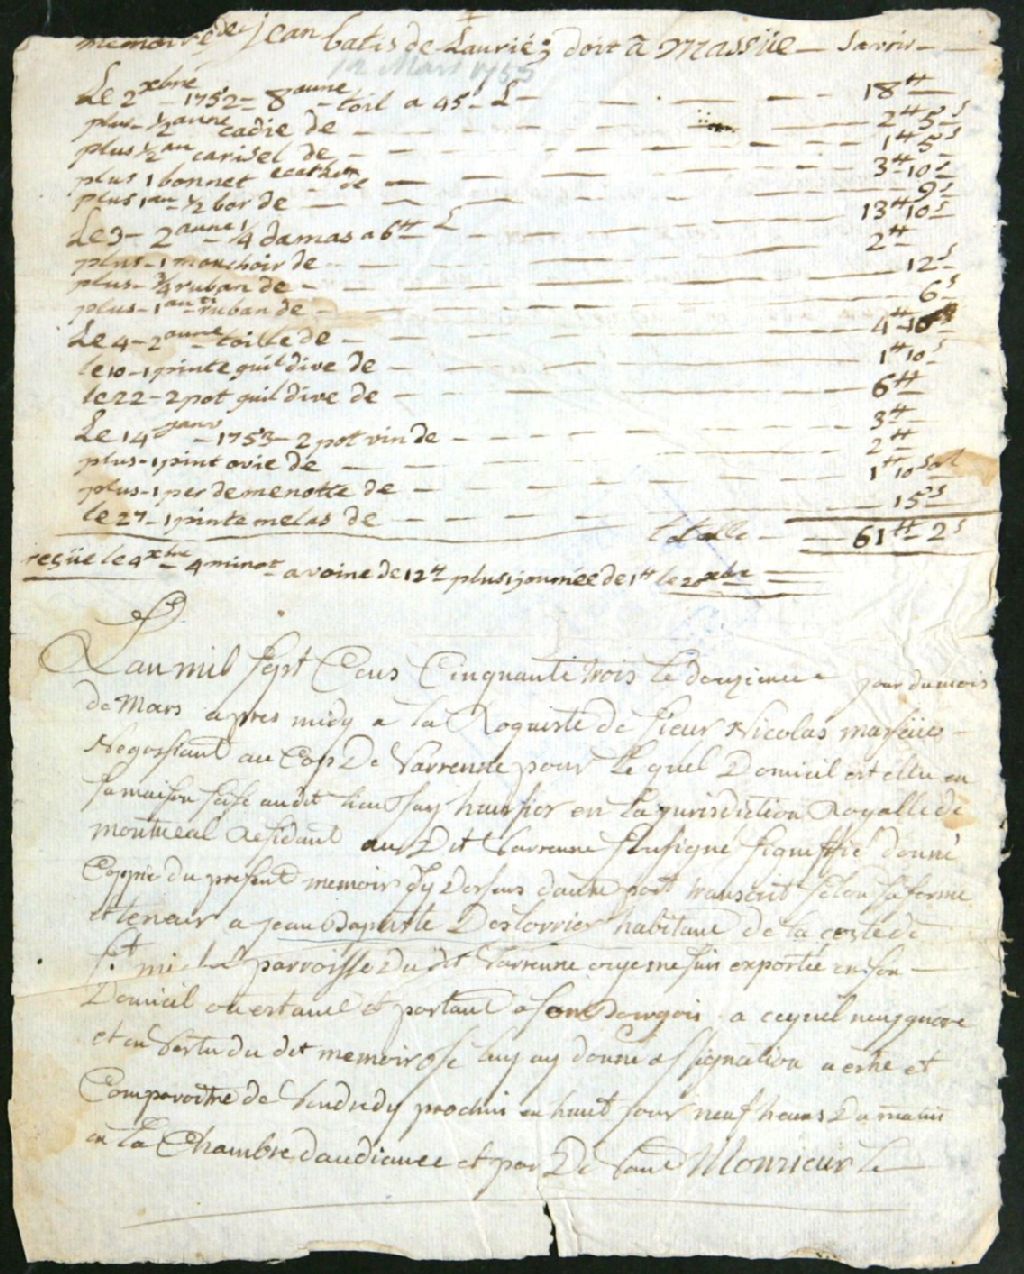 memoire de jean batis de Laurié; doit a Massüe — Savoir —
12 Mars 1753
Le 2 xbre — 1752 — 8 aune — toil a 45s L — 18tt
plus — 1/2 aune cadie de — 2tt 5s
plus 1/2 au carisel de — 1tt 5s
plus 1 bonnet de — 3tt 10s
plus 1 au 1/2 bor de — 9s
Le 3 — 2 aune 1/4 damas a 6tt L — 13tt 10s
plus — 1 mouchoir de — 2tt
plus — 3/4 ruban de — 12s
plus — 1 au ruban de — 6s
Le 4 — 2 aune toille de — 4tt 10s
le 10 — 1 pinte guildive de — 1tt 10s
le 22 — 2 pot guildive de — 6tt
Le 14 janv — 1753 — 2 pot vin de — 3tt
plus — 1 pint ovie de — 2tt
plus — 1 per de menotte de — 1tt 10 sol
le 27 — 1 pinte melas de — 15s
totalle — 61tt 2s
reçüe le 4 xbre 4 minot avoine de 12tt plus 1 journée de 1tt le 20 xbre
Lan mil Sept Cens Cinquante trois le douzieme jour du mois
de Mars apres midy a la Requeste de Sieur Nicolas massüe
Negossiant au Cap De Varrenne pour lequel Domicil est ellu en
sa maison sise audit lieu huissier en la jurisdiction Royalle de
montreal Residant au Dit Varrenne Soussigné signiffié donné
Coppie du present memoir dautre part transcrit selon sa forme
et teneur a jean Baptiste Deslorrier habitant de la coste de
St michel parroisse Du dit Varrenne ou je me suis exporté en son
Domicil ou estant et parlant a a ce quil nen ignore
et en Vertu du dit memoir je luy ay donné assignation a estre et
Comparoitre de Vendredy prochin en huit jour neuf heurs Du matin
en la Chambre daudiance et par De Vant Monsieur le